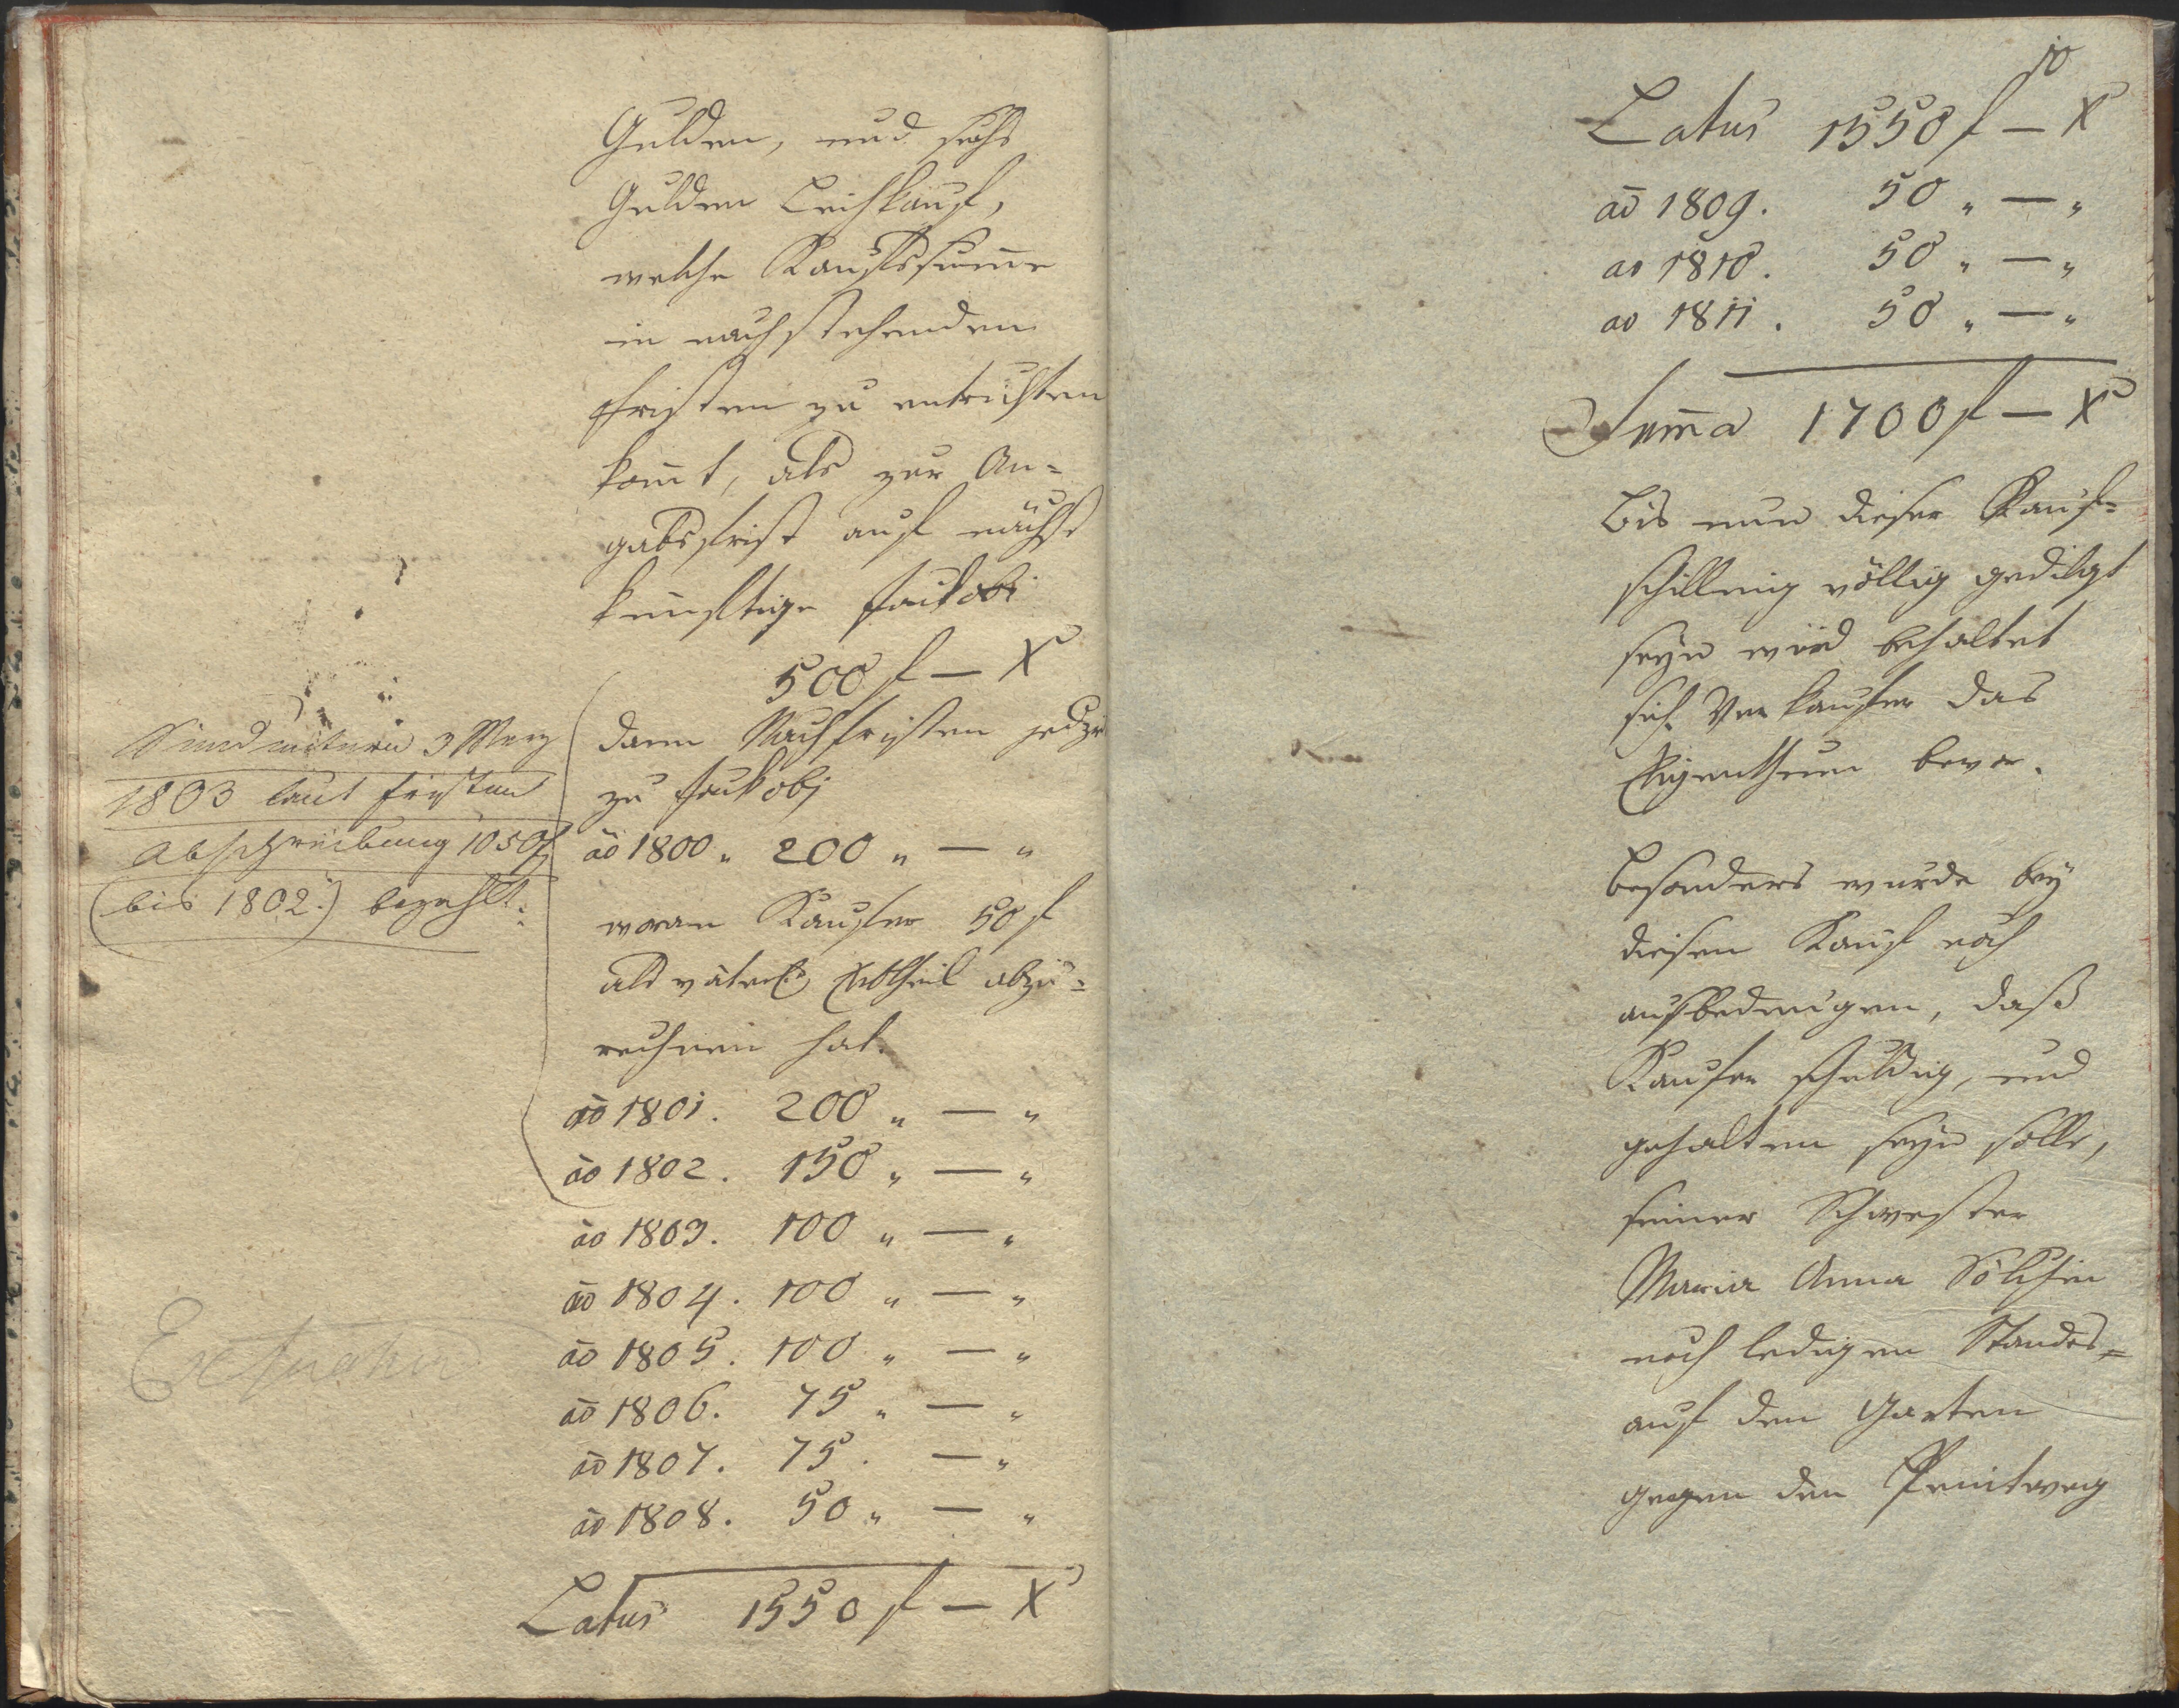 Gulden, und sechs
Gulden Leihkauf,
welche Kaufssum̄e
in nachstehenden
Fristen zu entrichten
kom̄t, als zur An=
gabsfrist auf nächst
künftige Jackobi
500 f — X
dann Nachfristen jedzr
zu Jackobj
ao 1800 „ 200 „ — „
woran Kaufer 50 f
als väterl. Erbtheil abzu=
rechnen hat.
ao 1801. 200 „ — „
ao 1802. 150 „ — „
ao 1803. 100 „ — „
ao 1804. 100 „ — „
ao 1805. 100 „ — „
ao 1806. 75 „ — „
ao 1807. 75 . — „
ao 1808. 50 „ — „
Latus 1550 f — X
Sind 3 Merz
1803 laut fristen
abschreibung 1050 f
(bis 1802.) bezahlt.
10
Latus 1550 f — X
ao 1809. 50 „ — „
ao 1810. 50 „ — „
ao 1811. 50 „ — „
Sum̄a 1700 f — X
Bis nun dieser Kauf=
schilling völlig gedilgt
seyn wird behaltet
sich Verkaufer das
Eigenthum bevor.
Besonders wurde bey
diesem Kauf noch
ausbedungen, daß
Kaufer schuldig, und
gehalten seyn solle,
seiner Schwester
Maria Anna Sölchin
noch ledigen Standes=
auf den Garten
gegen den